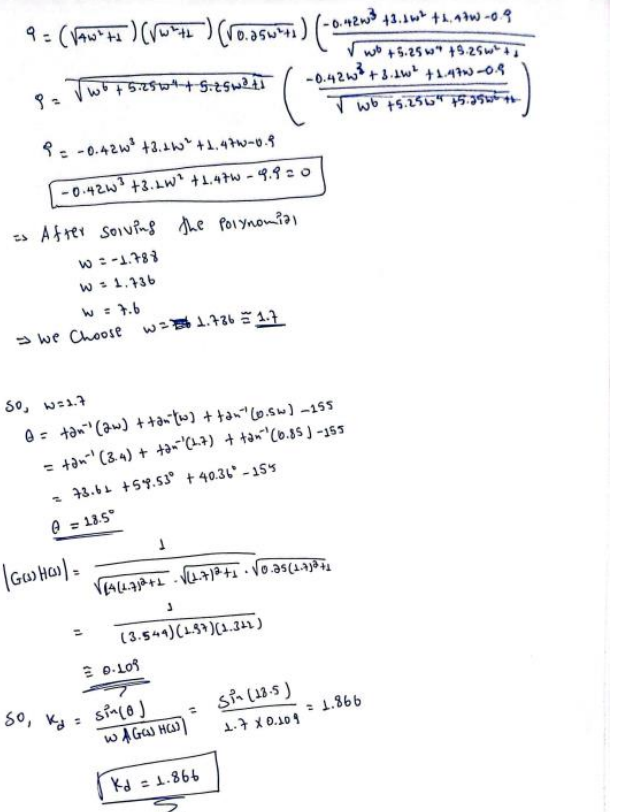 9 = (√4w²+1) (√w²+1) (√0.25w²+1) ( -0.42w³ +3.1w² +1.47w -0.9 / √w⁶ +5.25w⁴ +5.25w² +1 )
9 = √w⁶ +5.25w⁴ + 5.25w²+1 ( -0.42w³ +3.1w² +1.47w -0.9 / √w⁶ +5.25w⁴ +5.25w² +1 )
9 = -0.42w³ +3.1w² +1.47w-0.9
-0.42w³ +3.1w² +1.47w - 9.9 = 0
=> After solving the Polynomial
w = -1.788
w = 1.736
w = 7.6
=> we Choose w = 1.736 ≅ 1.7
So, w=1.7
θ = tan⁻¹(2w) + tan⁻¹(w) + tan⁻¹(0.5w) -155
= tan⁻¹(3.4) + tan⁻¹(1.7) + tan⁻¹(0.85) -155
= 73.61 +59.53° + 40.36° - 155
θ = 18.5°
|G(s)H(s)| = 1 / √(4(1.7)²+1 . √(1.7)²+1 . √0.25(1.7)²+1
= 1 / (3.544)(1.97)(1.312)
≅ 0.109
So, Kd = sin(θ) / w |G(s) H(s)| = sin(18.5) / 1.7 x 0.109 = 1.866
Kd = 1.866